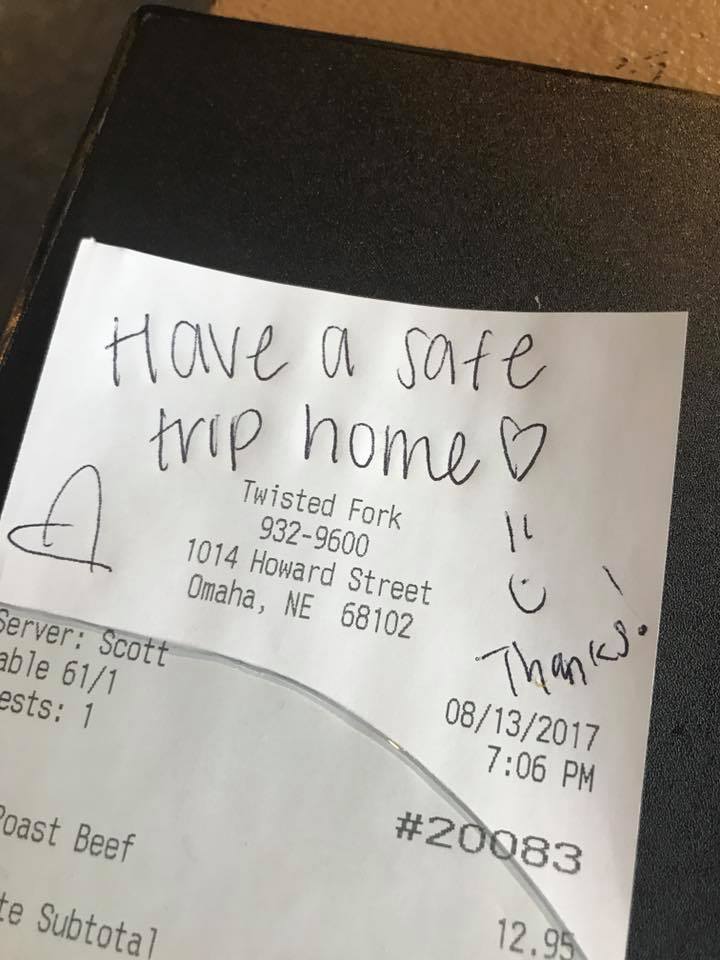 Have a safe
trip home♡
Twisted Fork
932-9600
1014 Howard Street
Omaha, NE 68102
Thanks!
Server: Scott
able 61/1
ests: 1
08/13/2017
7:06 PM
#20083
oast Beef
12.95
te Subtotal